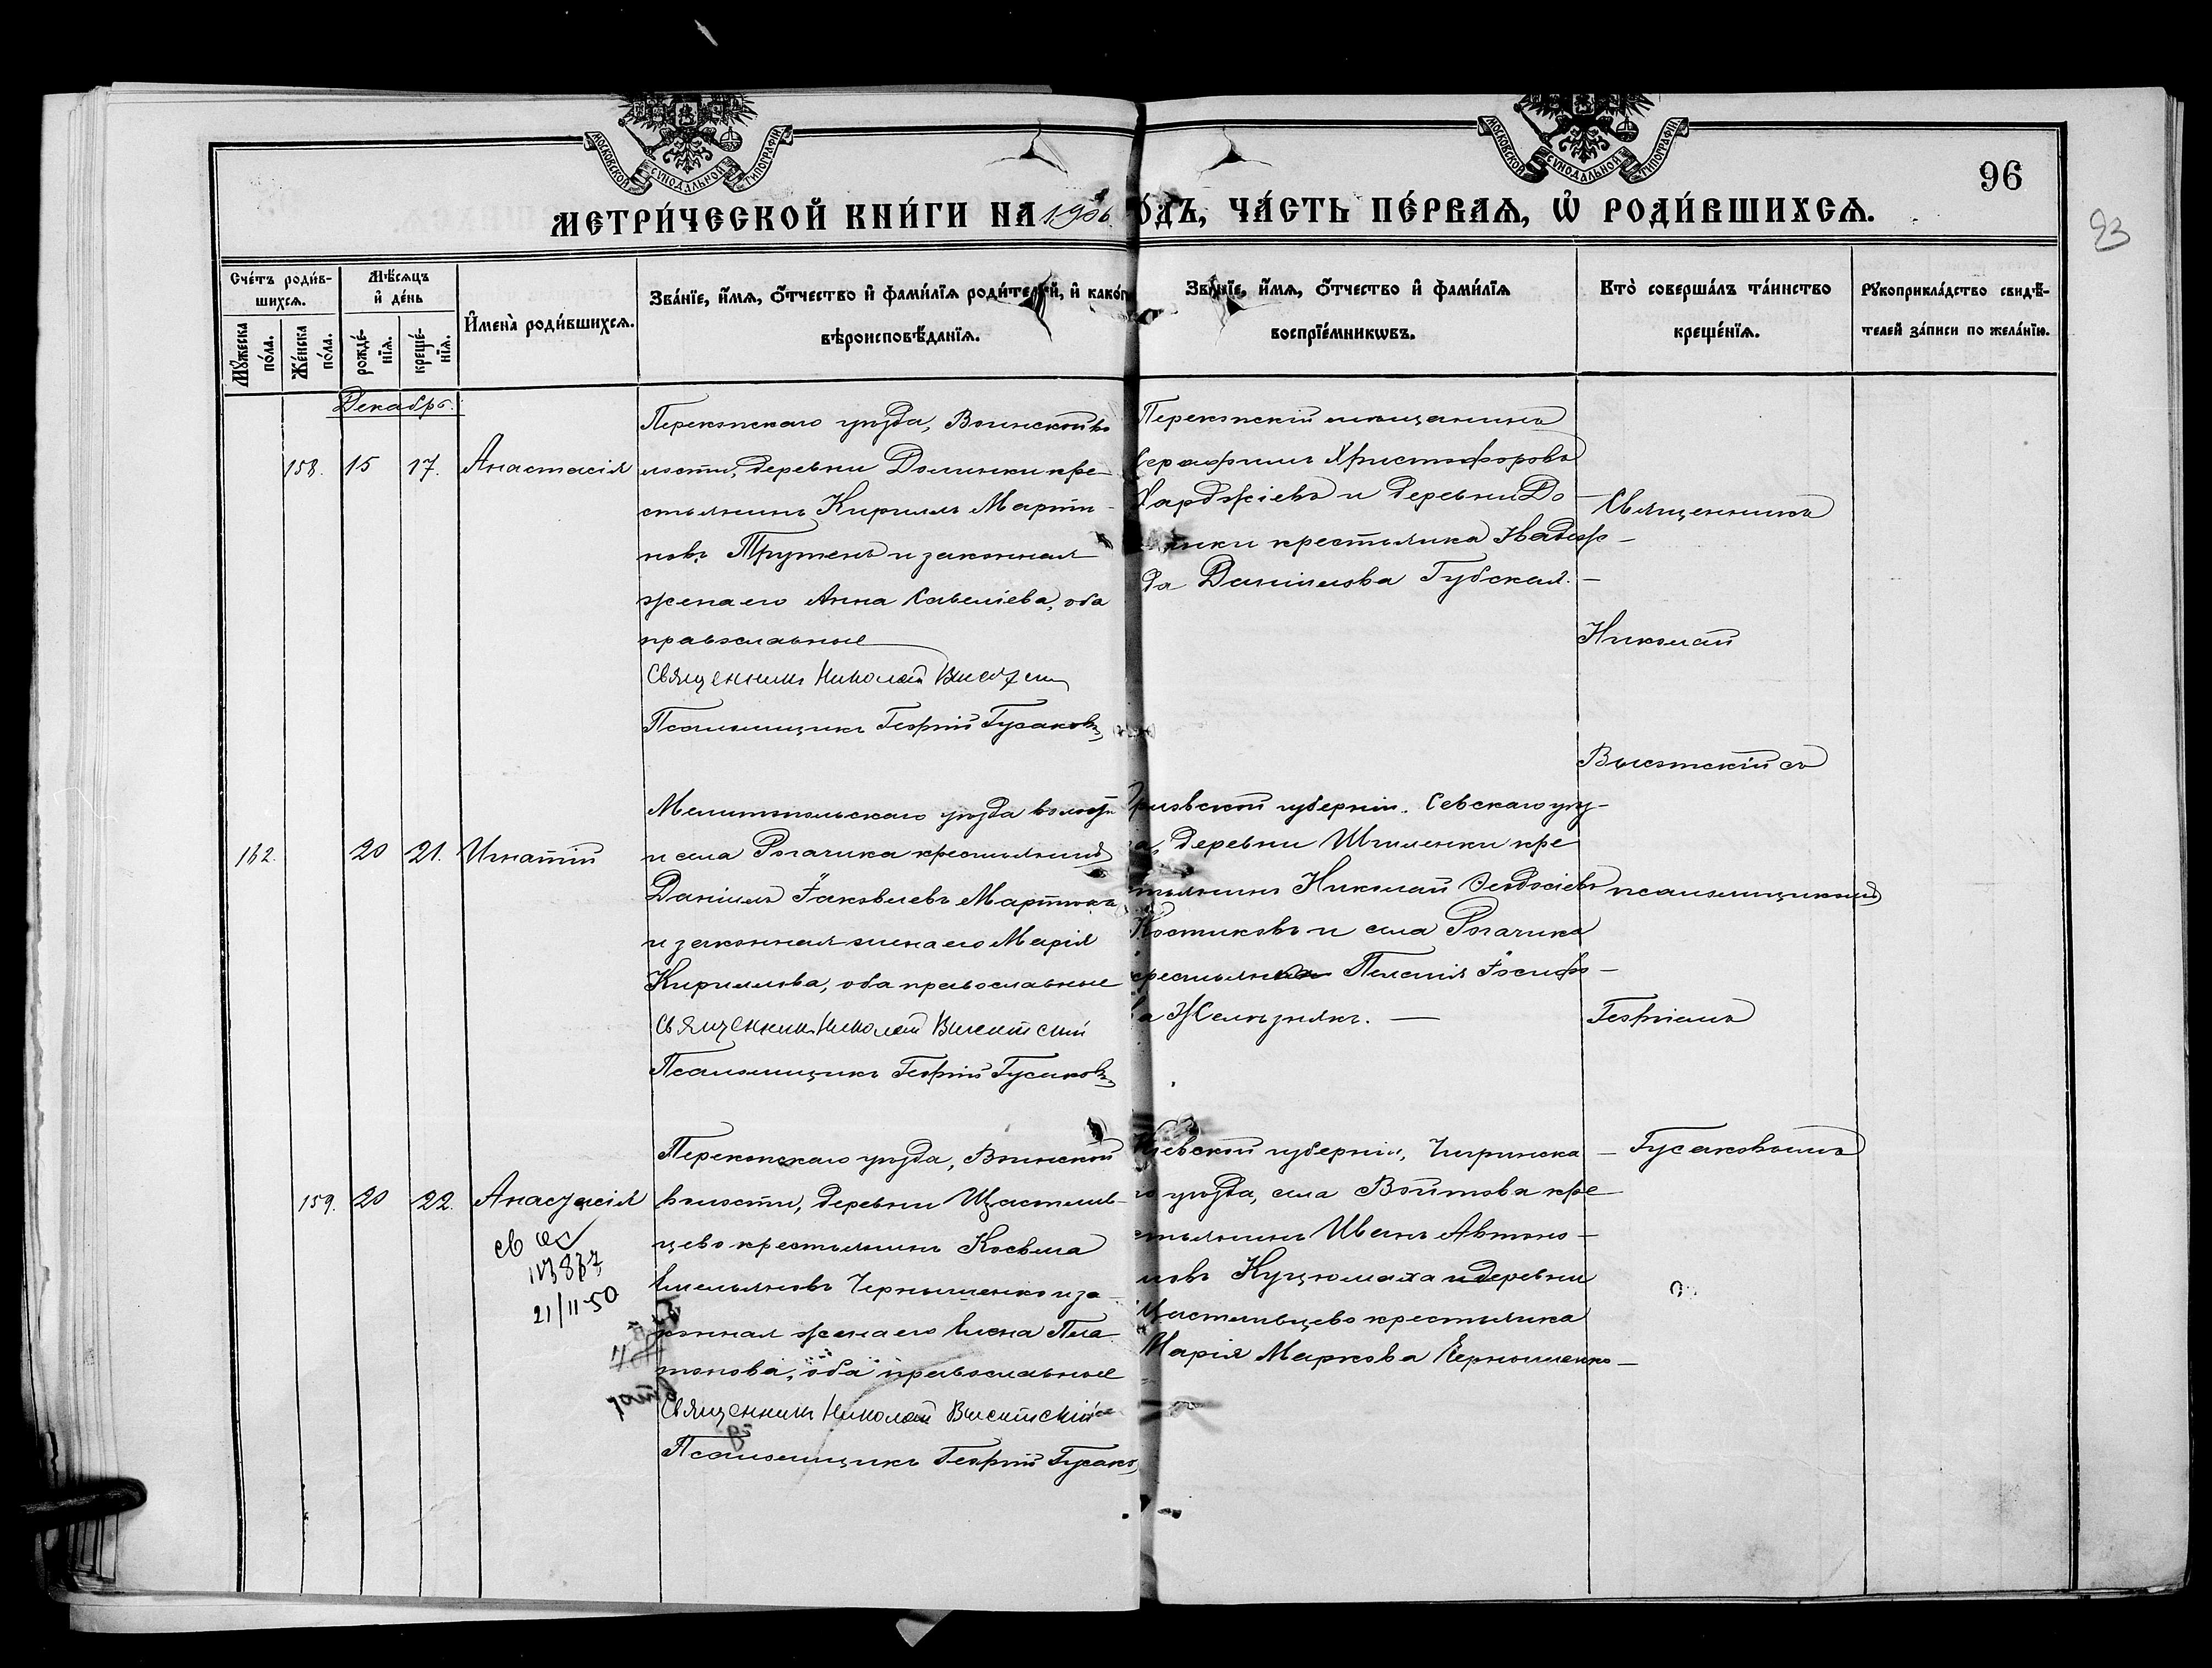 МОСКОВСКОЙ СѴНОДАЛЬНОЙ ТИПОГРАФІИ
МОСКОВСКОЙ СѴНОДАЛЬНОЙ ТИПОГРАФІИ
96
93
МЕТРИ́ЧЕСКОЙ КНИ́ГИ НА 1906 ГО́ДЪ, ЧА́СТЬ ПЕ́РВАѦ, Ѡ҆ РОДИ́ВШИХСѦ.
Сче́тъ роди́вшихсѧ.
Мꙋ́жеска по́ла.
Же́нска по́ла.
Мѣ́сѧцъ и҆ де́нь
рожде́нїѧ.
креще́нїѧ.
И҆мена̀ роди́вшихсѧ.
Зва́нїе, и҆́мѧ, ѻ҆́тчество и҆ фами́лїѧ роди́телей, и҆ како́гѡ
вѣроисповѣ́данїѧ.
Зва́нїе, и҆́мѧ, ѻ҆́тчество и҆ фами́лїѧ
воспрїе́мникѡвъ.
Кто̀ соверша́лъ та́инство
креще́нїѧ.
Рꙋкоприкла́дство свидѣ́-
телей за́писи по жела́нїю.
Декабрь.
158. 15 17. Анастасія
Перекопскаго уѣзда, Воинской во
лости, деревни Долинки кре-
стьянинъ Кириллъ Марти-
новъ Трутень и законная
жена его Анна Савеліева, оба
православные
Священникъ Николай Высотскій
Псаломщикъ Георгій Гусаковъ
Перекопскій мѣщанинъ
Серафимъ Христофоровъ
Харджіевъ и деревни До-
линки крестьянка Надеж-
да Даніилова Губская.
Священникъ
Николай
Высотскій съ
162. 20 21. Игнатій
Мелитопольскаго уѣзда волости
и села Рогачика крестьянинъ
Даніилъ Іаковлевъ Мартюкъ
и законная жена его Марія
Кириллова, оба православные
Священникъ Николай Высотскій
Псаломщикъ Георгій Гусаковъ
Орловской губерніи. Севскаго уѣз-
да, деревни Шиленки кре
стьянинъ Николай Ѳеодосіевъ
Костиковъ и села Рогачика
крестьянка Пелагія Іосифо-
ва Желѣзнякъ.
псаломщикомъ
Георгіемъ
Гусаковымъ
159. 20 22. Анастасія
св
21/11-50
Перекопскаго уѣзда, Воинской
волости, деревни Щастлив-
цево крестьянинъ Косьма
Емельяновъ Чернышенко и за-
конная жена его Елена Пла-
тонова, оба православные
Священникъ Николай Высотскій
Псаломщикъ Георгій Гусаковъ
Кіевской губерніи, Чигринска-
го уѣзда, села Войтова кре-
стьянинъ Иванъ Автоно-
мовъ Куцюмаха и деревни
Щастливцево крестьянка
Марія Маркова Чернышенко